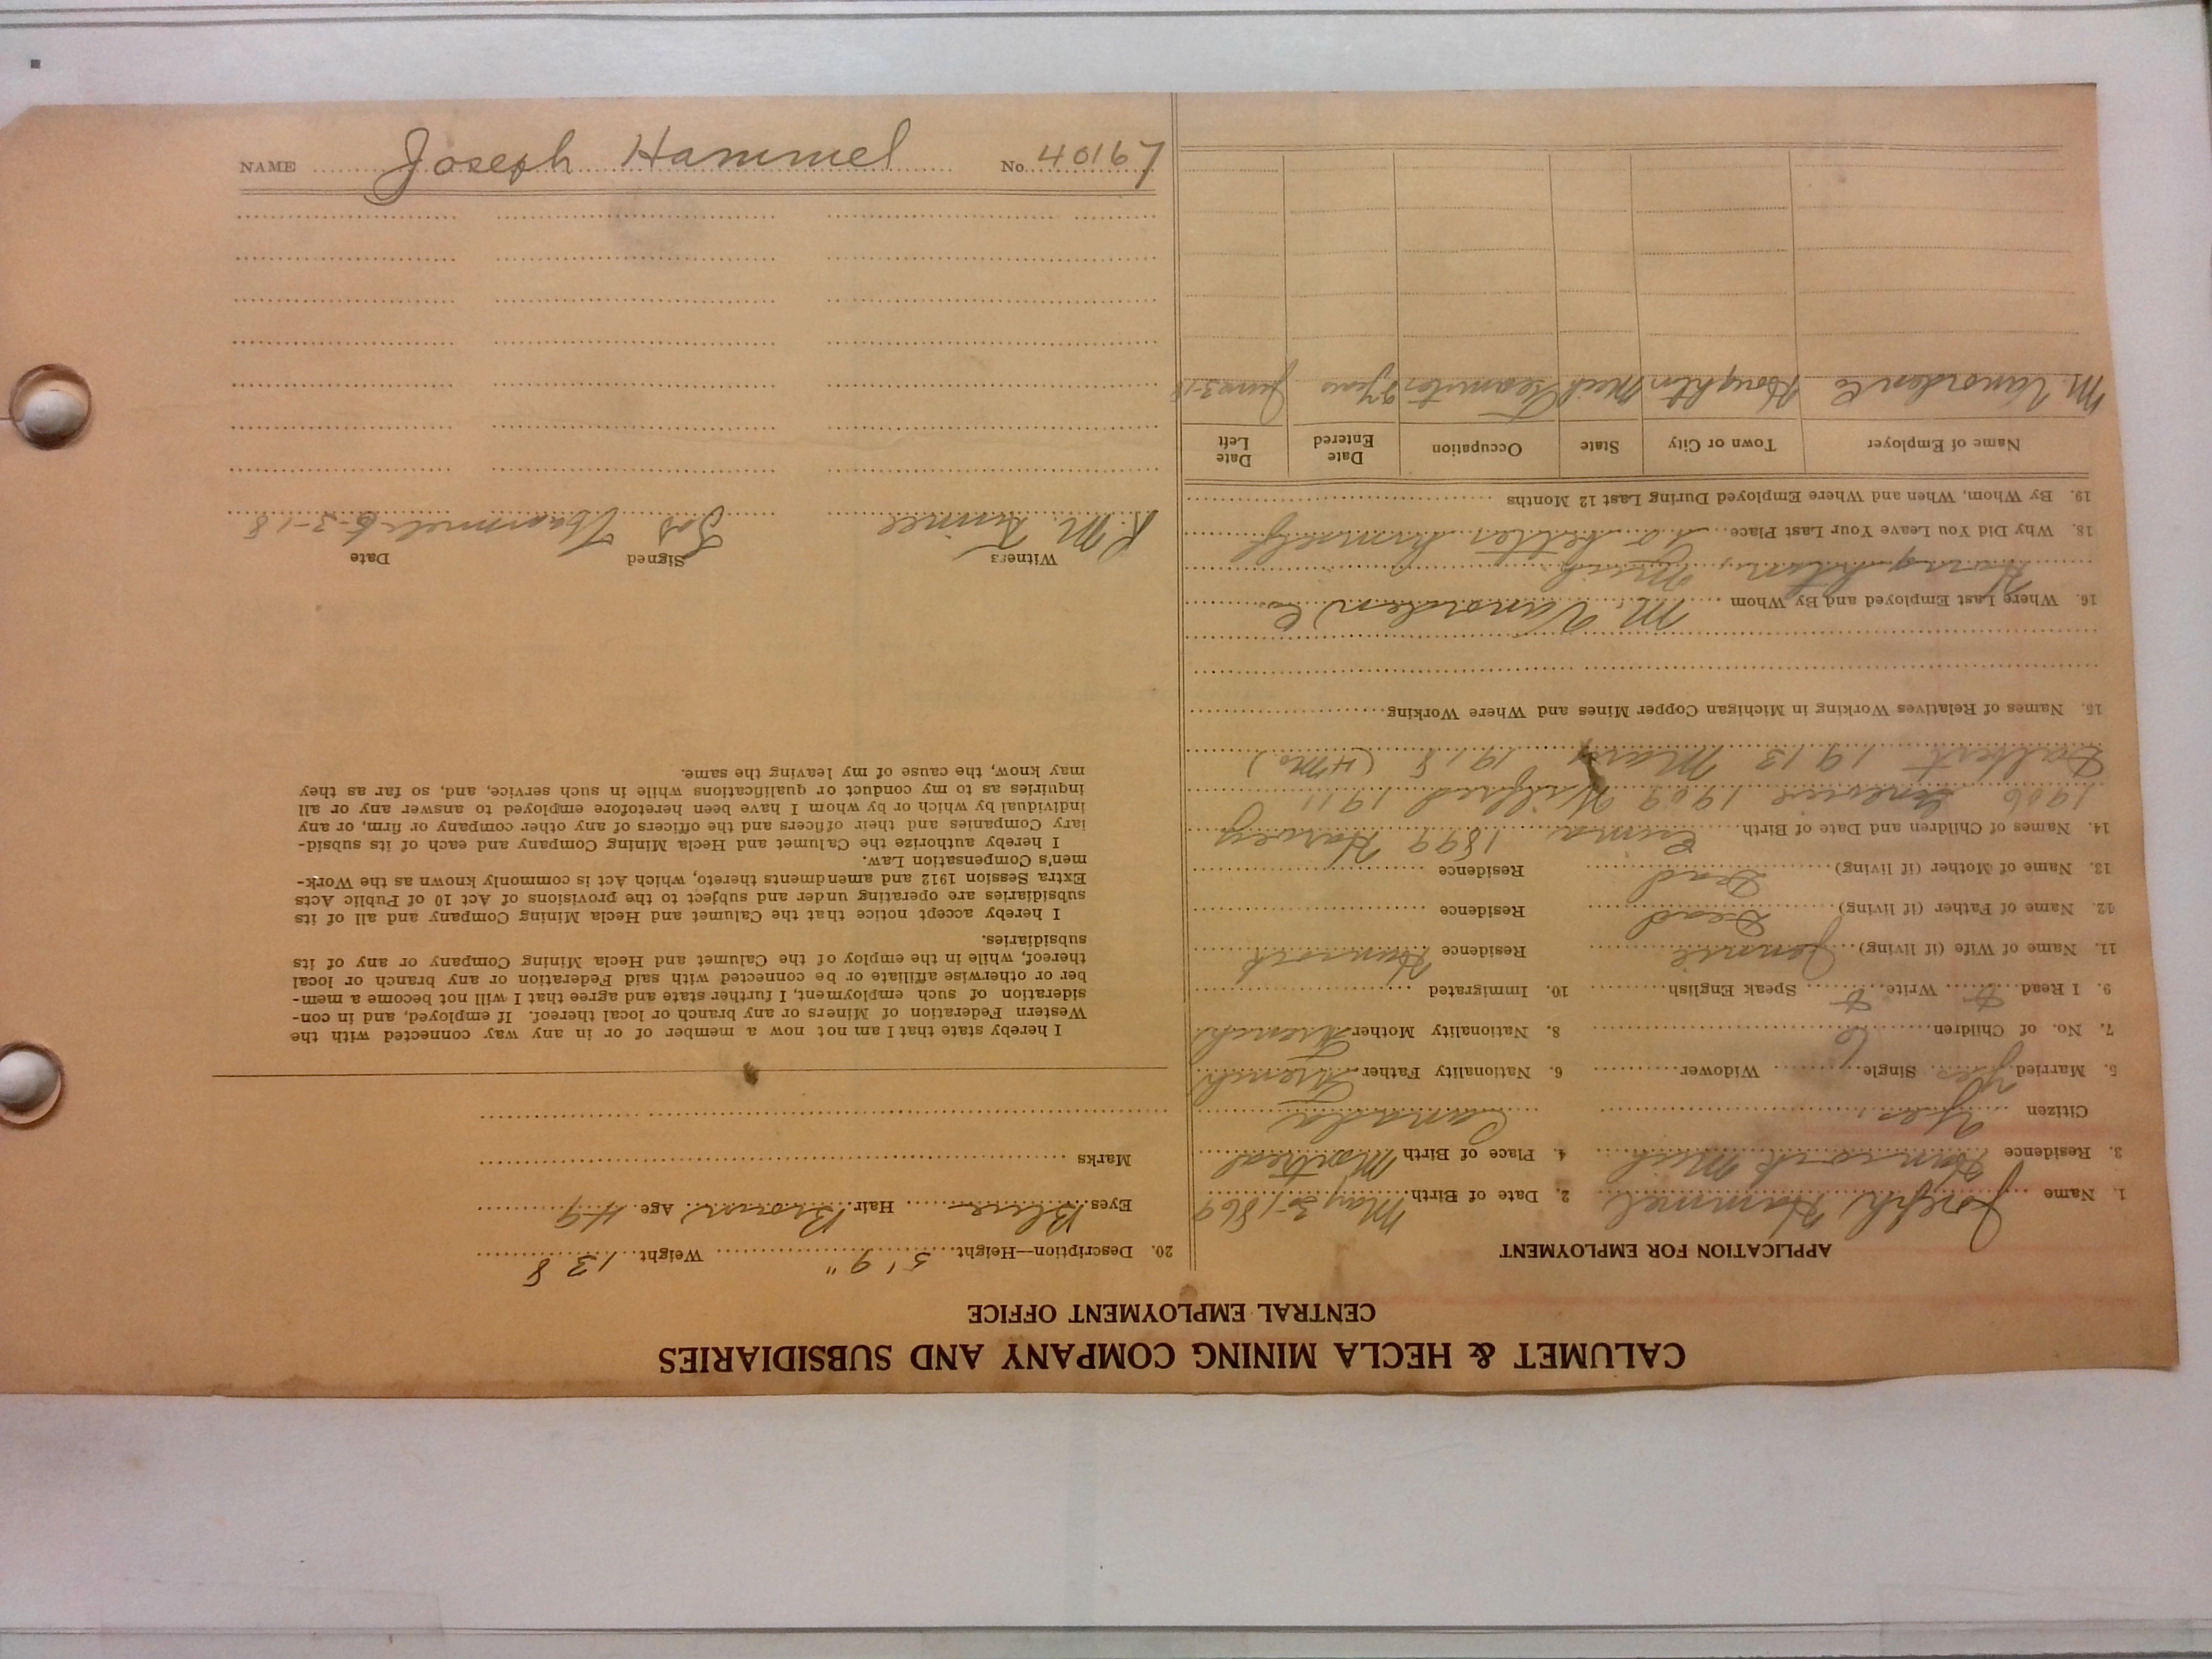 CALUMET & HECLA MINING COMPANY AND SUBSIDIARIES
CENTRAL EMPLOYMENT OFFICE
APPLICATION FOR EMPLOYMENT
1. Name Joseph Hammel 2. Date of Birth May 3-1869
3. Residence Hancock Mich 4. Place of Birth Montreal
Citizen Yes Canada
5. Married yes Single Widower 6. Nationality Father French
7. No. of Children 6 8. Nationality Mother French
9. I Read Write Speak English 10. Immigrated
11. Name of Wife (if living) Jennie Residence Hancock
12. Name of Father (if living) Dead Residence
13. Name of Mother (if living) Dead Residence
14. Names of Children and Date of Birth 1899 Harvey
1906 1909 Wilfred 1911
1913 Mary 1918 (4 Mo)
15. Names of Relatives Working in Michigan Copper Mines and Where Working
16. Where Last Employed and By Whom M. Vanorden Co.
Houghton, Mich
18. Why Did You Leave Your Last Place To better himself
19. By Whom, When and Where Employed During Last 12 Months
Name of Employer Town or City State Occupation Date Entered Date Left
M. Vanorden Co Houghton Mich Teamster June 3-18
20. Description—Height 5' 9" Weight 138
Eyes Blue Hair Brown Age 49
Marks
I hereby state that I am not now a member of or in any way connected with the
Western Federation of Miners or any branch or local thereof. If employed, and in con-
sideration of such employment, I further state and agree that I will not become a mem-
ber or otherwise affiliate or be connected with said Federation or any branch or local
thereof, while in the employ of the Calumet and Hecla Mining Company or any of its
subsidiaries.
I hereby accept notice that the Calumet and Hecla Mining Company and all of its
subsidiaries are operating under and subject to the provisions of Act 10 of Public Acts
Extra Session 1912 and amendments thereto, which Act is commonly known as the Work-
men's Compensation Law.
I hereby authorize the Calumet and Hecla Mining Company and each of its subsid-
iary Companies and their officers and the officers of any other company or firm, or any
individual by which or by whom I have been heretofore employed to answer any or all
inquiries as to my conduct or qualifications while in such service, and, so far as they
may know, the cause of my leaving the same.
Witness Signed Date
Jos Hammel 6-3-18
NAME Joseph Hammel No. 40167